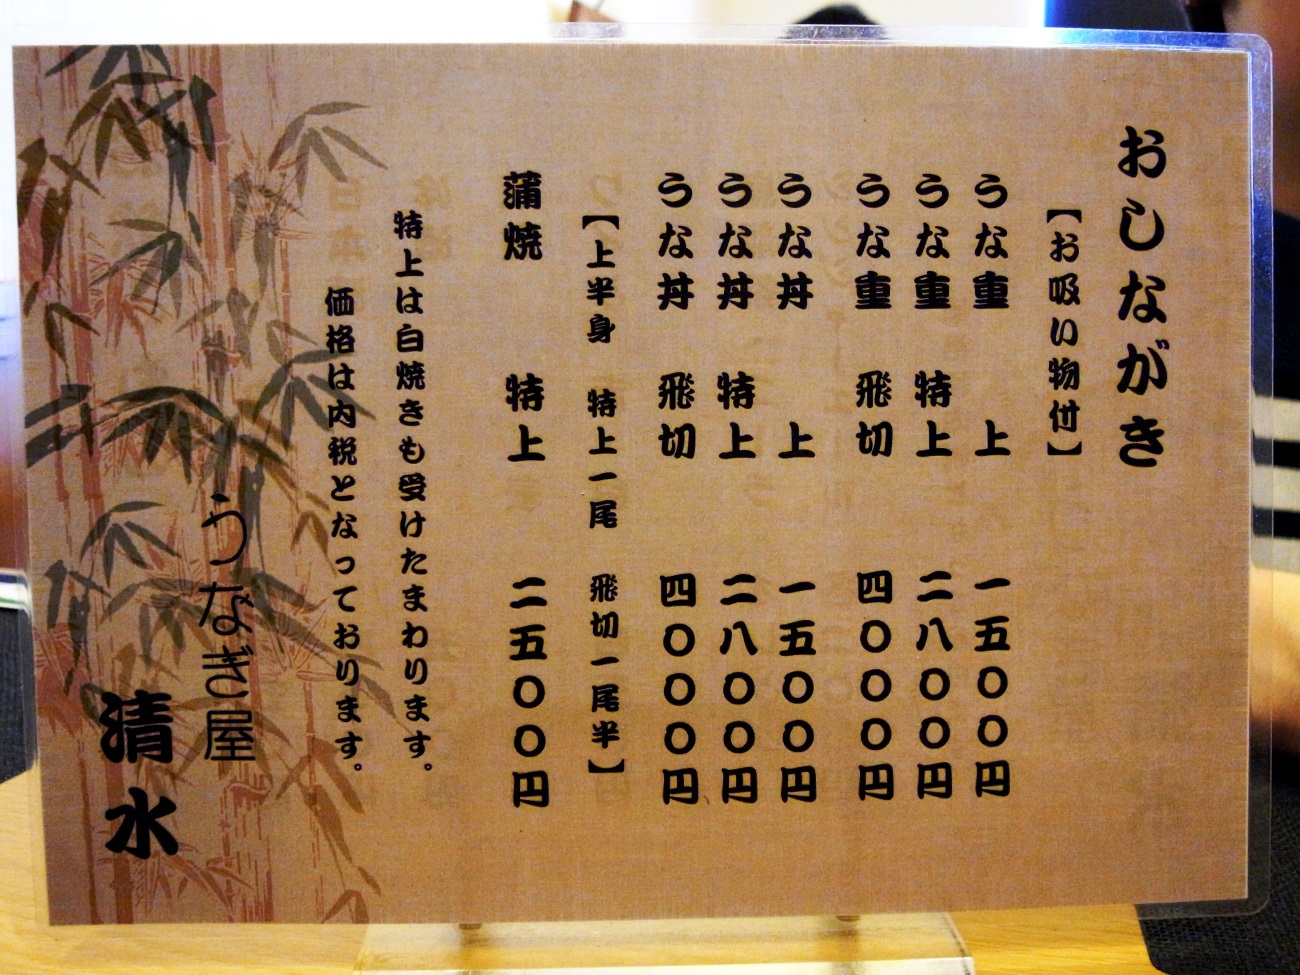 おしながき
【お吸い物付】
うな重 上 一五〇〇円
うな重 特上 二八〇〇円
うな重 飛切 四〇〇〇円
うな丼 上 一五〇〇円
うな丼 特上 二八〇〇円
うな丼 飛切 四〇〇〇円
【上半身 特上一尾 飛切一尾半】
蒲焼 特上 二五〇〇円
特上は白焼きも受けたまわります。
価格は内税となっております。
うなぎ屋
清水